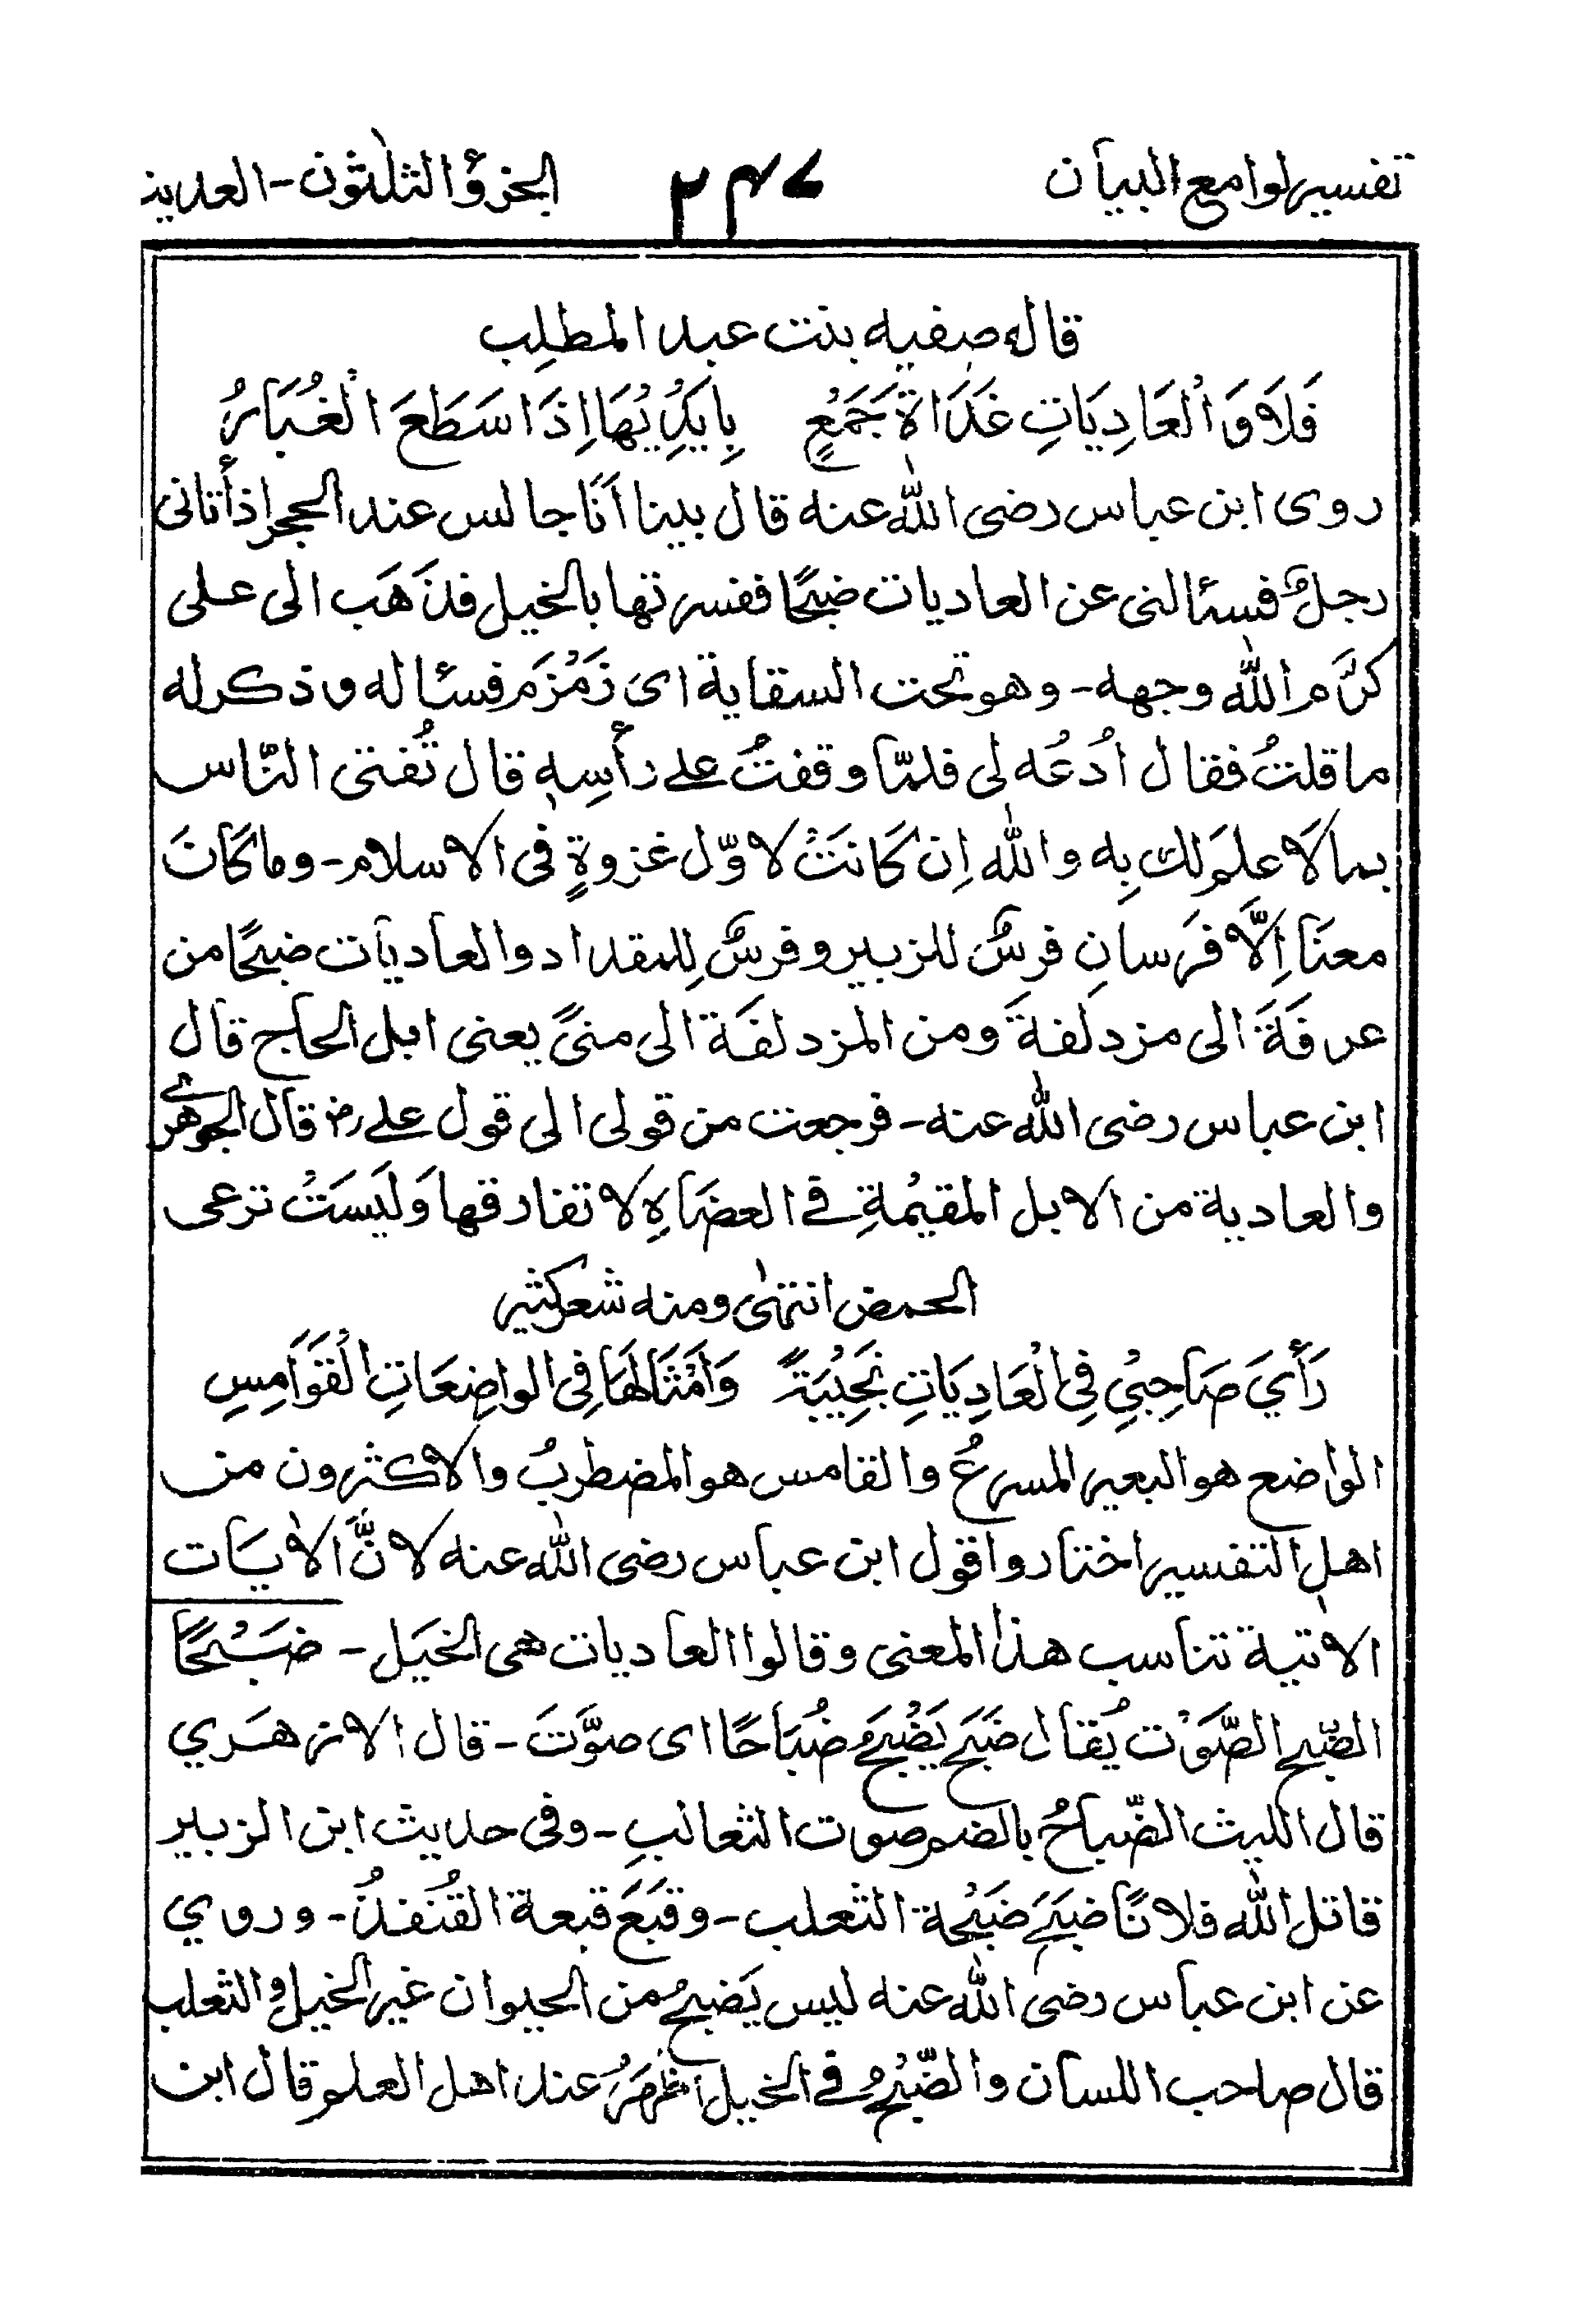 تفسير لوامع البيان ٢٣٧ الجزؤ الثلثون - العديت
قاله صفيه بنت عبد المطلب
فَلَا وَالْعَادِيَاتِ غَدَاةَ جَمْعٍ بِايَدِيْهَا اِذَا سَطَعَ الْغُبَارُ
روى ابن عباس رضى الله عنه قال بينا اَنَا جالس عند الحجر اذأتانى
رجلٌ فسئالنى عن العاديات ضبحًا ففسرتها بالخيل فذَهَب الى على
كرَّم الله وجهه - وهو تحت السقاية اى زَمْزَم فسئاله و ذكر له
ما قلتُ فقال اُدْعُه لى فلمّا وقفتُ على رأسِهٖ قال تُفتى النّاس
بما لَا علمَ لك بِه والله اِن كَانَتْ لاوّل غزوةٍ فى الاسلام - وما كَانَ
معنَا اِلَّا فرَسانِ فرسٌ للزبير وفرسٌ لِلمقداد والعاديات ضبحًا من
عرفَةَ الى مزدلفةَ ومن المزدلفَة الى منىً يعنى ابل الحاج قال
ابن عباس رضى الله عنه - فرجعت من قولى الى قول على رض قال الجوهرى
والعادية من الابل المقيْمةِ فى العضَاهِ لا تفارقها وَلَيسَتْ ترعى
الحمض انتهىٰ ومنه شعر كثير
رَأَيَ صَاحِبِيْ فِى الْعَادِيَاتِ نَجِيْبَةً وَاَمْثَالَهَا فِى الواضِعَاتِ الْقَوَامِسِ
الواضع هو البعير المسرعُ والقامس هو المضطربُ والاكثرون من
اهل التفسير اختاروا قول ابن عباس رضى الله عنه لانَّ الاٰيَات
الاٰتية تناسب هذا المعنى وقالوا العاديات هى الخيَل - ضَبْحًا
الضّبح الصَّوْت يُقال ضَبَحَ يَضْبَحُ ضُبَاحًا اى صوَّتَ - قال الازهَري
قال الليث الضّباحُ بالضم صوت الثعالبِ - وفى حديث ابن الزبير
قاتل الله فلانًا ضبَحَ ضَبْحة الثعلب - وقبَعَ قبعة القُنفذُ - وروي
عن ابن عباس رضى الله عنه ليس يَضبحُ من الحيوان غير الخيل والثعلب
قال صاحب اللسان والضّبْحُ فى الخيل اَظهَرُ عند اهل العلم قال ابن